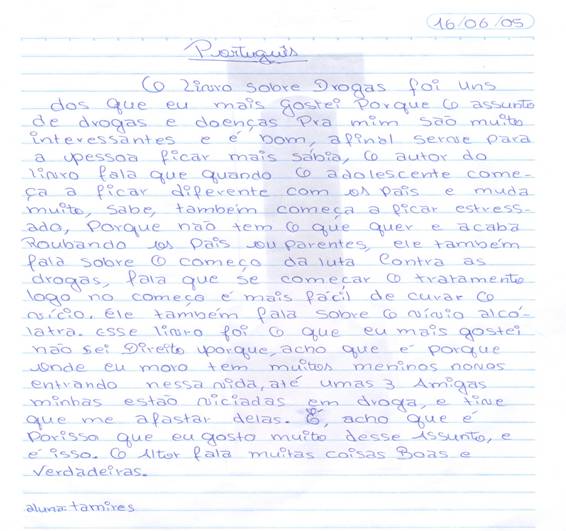 16/06/05
Português
O Livro sobre Drogas foi uns
dos que eu mais gostei Porque o assunto
de drogas e doenças Pra mim são muito
interessantes e é bom, afinal serve para
a pessoa ficar mais sábia, o autor do
livro fala que quando o adolescente come-
ça a ficar diferente com os Pais e muda
muito, sabe, também começa a ficar estress-
ado, Porque não tem o que quer e acaba
Roubando os Pais ou parentes, ele também
fala sobre o começo da luta Contra as
drogas, fala que se começar o tratamento
logo no começo é mais fácil de curar o
vício. Ele também fala sobre o vívio alcó-
latra. esse livro foi o que eu mais gostei
não sei Direito porque, acho que é porque
onde eu moro tem muitos meninos novos
entrando nessa vida, até umas 3 Amigas
minhas estão viciadas em droga, e tive
que me afastar delas. É, acho que é
Porisso que eu gosto muito desse Assunto, e
é isso. O Altor fala muitas coisas Boas e
Verdadeiras.
aluna: tamires